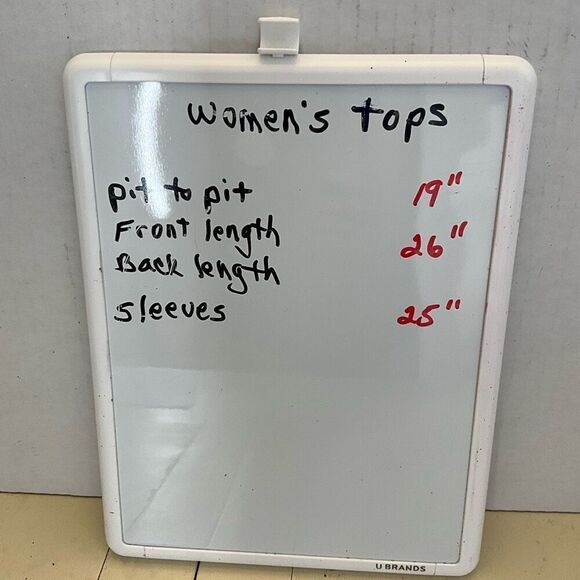 women's tops
pit to pit 19"
Front length 26"
Back length
sleeves 25"
U BRANDS